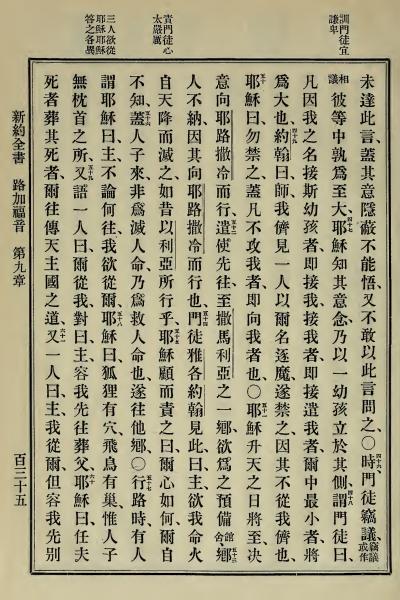 訓門徒宜
謙卑
責門徒心
太嚴厲
三人欲從
耶穌耶穌
答之各異
未達此言、蓋其意隱蔽不能悟、又不敢以此言問之、〇四十六時門徒竊議、竊議或作
相議彼等中孰爲至大、四十七耶穌知其意念、乃以一幼孩立於其側、四十八謂門徒曰、
凡因我之名接斯幼孩者、卽接我、接我者卽接遣我者、爾中最小者將
爲大也、四十九約翰曰、師、我儕見一人以爾名逐魔、遂禁之、因其不從我儕也、
五十耶穌曰、勿禁之、蓋凡不攻我者、卽向我者也、〇五十一耶穌升天之日將至、決
意向耶路撒冷而行、五十二遣使先往、至撒馬利亞之一鄉、欲爲之預備館舍、五十三鄉
人不納、因其向耶路撒冷而行也、五十四門徒雅各約翰見此曰、主欲我命火
自天降而滅之、如昔以利亞所行乎、五十五耶穌顧而責之曰、爾心如何、爾自
不知、五十六蓋人子來、非爲滅人命、乃爲救人命也、遂往他鄉、〇五十七行路時、有人
謂耶穌曰、主、不論何往、我欲從爾、五十八耶穌曰、狐狸有穴、飛鳥有巢、惟人子
無枕首之所、五十九又語一人曰、爾從我、對曰、主、容我先往葬父、六十耶穌曰、任夫
死者葬其死者、爾往傳天主國之道、六十一又一人曰、主、我從爾、但容我先別
新約全書　路加福音　第九章　百三十五